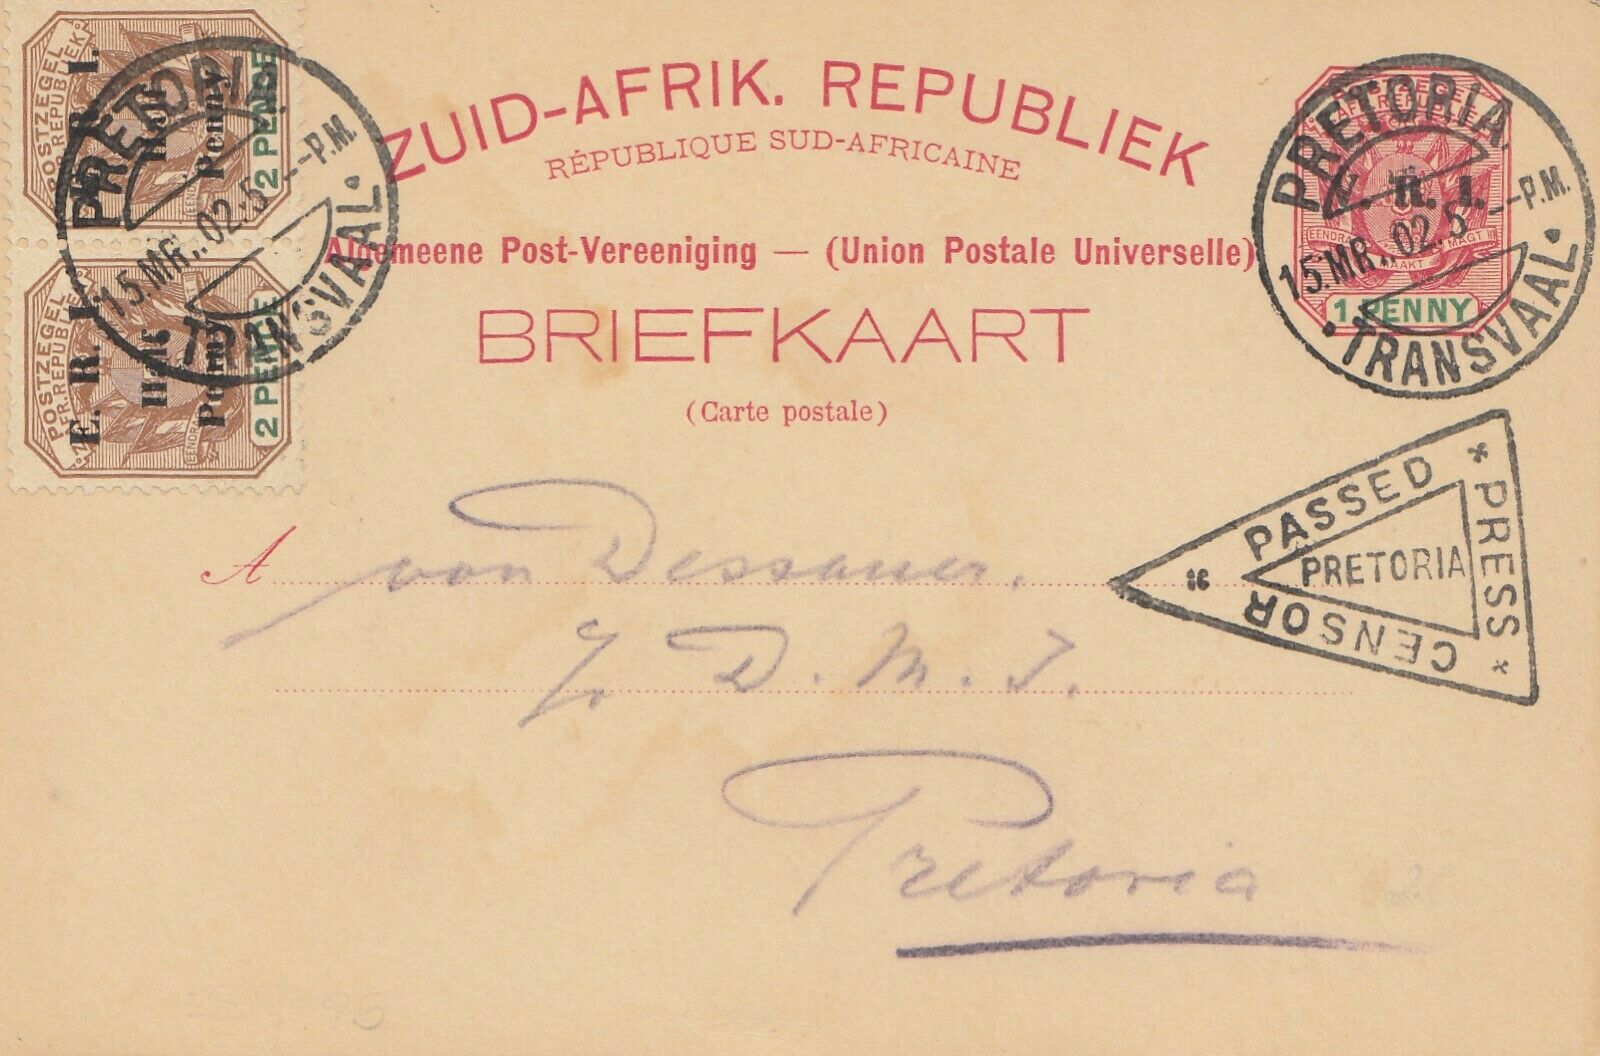 ZUID-AFRIK. REPUBLIEK
RÉPUBLIQUE SUD-AFRICAINE
Algemeene Post-Vereeniging — (Union Postale Universelle)
BRIEFKAART
(Carte postale)
POSTZEGEL
Z. AFR. REPUBLIEK
E. R. I.
Half
Penny
2 PENCE
EENDRA
PRETORIA
15.MR..02.5--P.M.
TRANSVAAL
POSTZEGEL
Z. AFR. REPUBLIEK
E. R. I.
Half
Penny
2 PENCE
EENDRA
PRETORIA
R. I.
15.MR..02.5--P.M.
EENDRA MAGT
MAAKT
1 PENNY
TRANSVAAL
PASSED
* PRESS *
CENSOR
PRETORIA
A von Dessauer.
D. M. T.
Pretoria